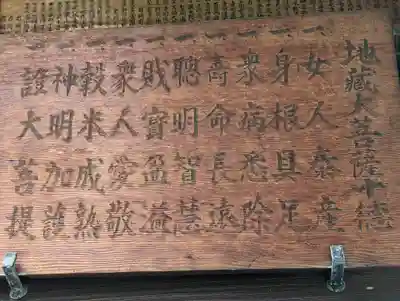 地藏大菩薩十徳
一女人泰産
一身根具足
一衆病悉除
一壽命長遠
一聰明智慧
一財寶盈溢
一衆人愛敬
一穀米成熟
一神明加護
一證大菩提